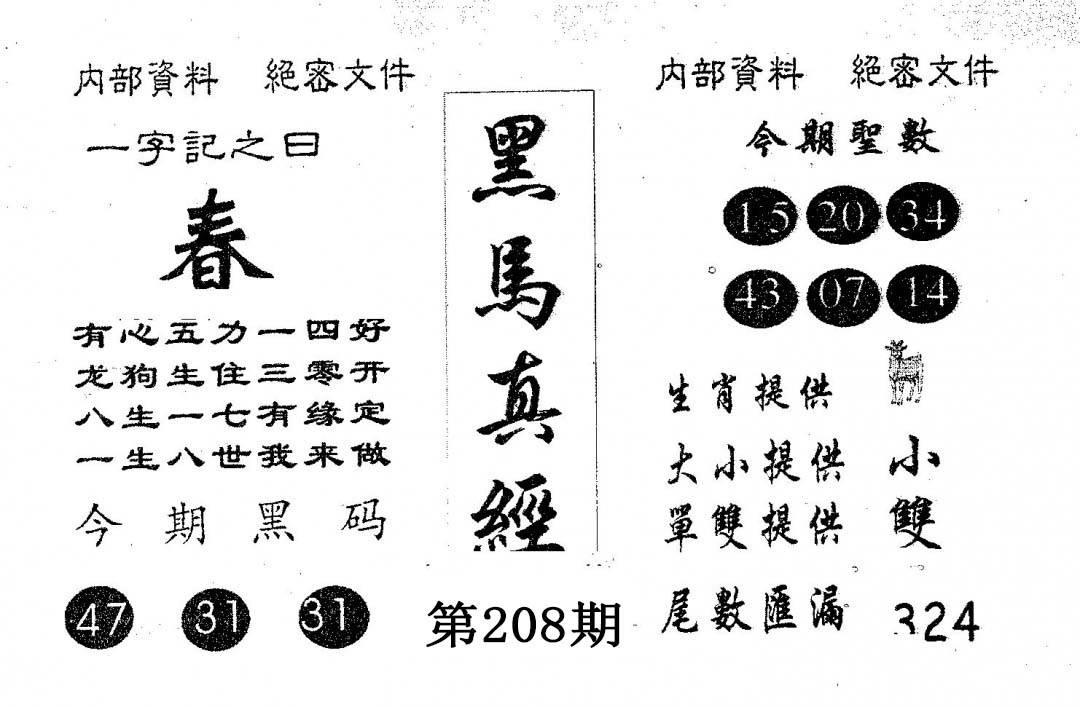 内部資料 絕密文件
一字記之曰
春
有心五力一四好
龙狗生住三零开
八生一七有缘定
一生八世我来做
今期黑码
47 31 31
黑馬真經
第208期
内部資料 絕密文件
今期聖數
15 20 34
43 07 14
生肖提供
大小提供 小
單雙提供 雙
尾數匯漏 324